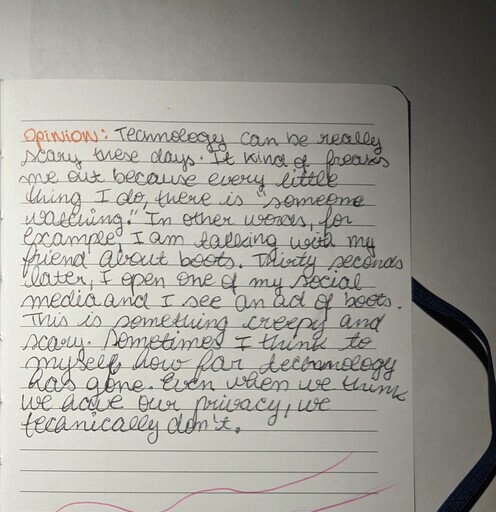 Opinion: Technology can be really
scary these days. It kind of freaks
me out because every little
thing I do, there is "someone
watching." In other words, for
example, I am talking with my
friend about boots. Thirty seconds
later, I open one of my social
media and I see an ad of boots.
This is something creepy and
scary. Sometimes I think to
myself how far technology
has gone. Even when we think
we have our privacy, we
technically don't.